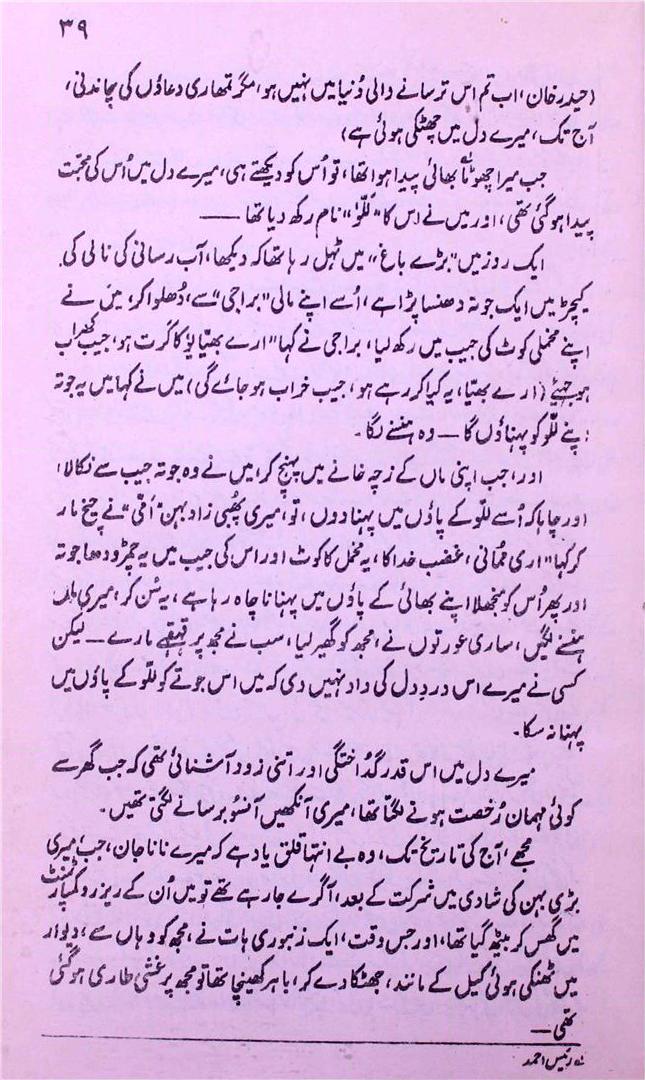 ۳۹
(حیدر خان، اب تم اس ترسانے والی دُنیا میں نہیں ہو، مگر تمھاری دعاؤں کی چاندنی،
آج تک، میرے دل میں چھٹکی ہوئی ہے)
جب میرا چھوٹا بھائی پیدا ہوا تھا، تو اُس کو دیکھتے ہی، میرے دل میں اُس کی محبّت
پیدا ہو گئی تھی، اور میں نے اس کا "للّو" نام رکھ دیا تھا ——
ایک روز میں "بڑے باغ" میں ٹہل رہا تھا کہ دیکھا، آب رسانی کی نالی کی
کیچڑ میں ایک جوتہ دھنسا پڑا ہے، اُسے اپنے مالی "براجی" سے، دُھلوا کر، میں نے
اپنے مخملی کوٹ کی جیب میں رکھ لیا، براجی نے کہا "ارے بھیّا یؤ کا کرت ہو، جیب کھراب
ہو جہئے (ارے بھیّا، یہ کیا کر رہے ہو، جیب خراب ہو جائے گی) میں نے کہا میں یہ جوتہ
اپنے للّو کو پہناؤں گا — وہ ہنسنے لگا۔
اور، جب اپنی ماں کے زچہ خانے میں پہنچ کر، میں نے وہ جوتہ جیب سے نکالا،
اور چاہا کہ اُسے للّو کے پاؤں میں پہنا دوں، تو، میری پھُپی زاد بہن "اُمّی" نے چیخ مار
کر کہا "اری مُمانی، غضب خدا کا، یہ مخمل کا کوٹ اور اس کی جیب میں یہ چمڑودھا جوتہ
اور پھر اُس کو منجھلا اپنے بھائی کے پاؤں میں پہنانا چاہ رہا ہے، یہ سُن کر، میری ماں
ہنسنے لگیں، ساری عورتوں نے، مجھ کو گھیر لیا، سب نے مجھ پر قہقہے مارے — لیکن
کسی نے میرے اس دردِ دل کی داد نہیں دی کہ میں اس جوتے کو للّو کے پاؤں میں
پہنا نہ سکا۔
میرے دل میں اس قدر گُداختگی اور اتنی زُود آشنائی تھی کہ جب گھر سے
کوئی مہمان رُخصت ہونے لگتا تھا، میری آنکھیں آنسُو برسانے لگتی تھیں۔
مجھے، آج کی تاریخ تک، وہ بے انتہا قلق یاد ہے کہ میرے نانا جان، جب میری
بڑی بہن کی شادی میں شرکت کے بعد، آگرے جا رہے تھے تو میں اُن کے ریزرو کمپارٹمنٹ
میں گھس کر بیٹھ گیا تھا، اور جس وقت، ایک زنبوری ہات نے، مجھ کو وہاں سے، دیوار
میں ٹھنکی ہوئی کیل کے مانند، جھٹکا دے کر، باہر کھینچا تھا تو مجھ پر غشی طاری ہو گئی
تھی —
لہ رئیس احمد